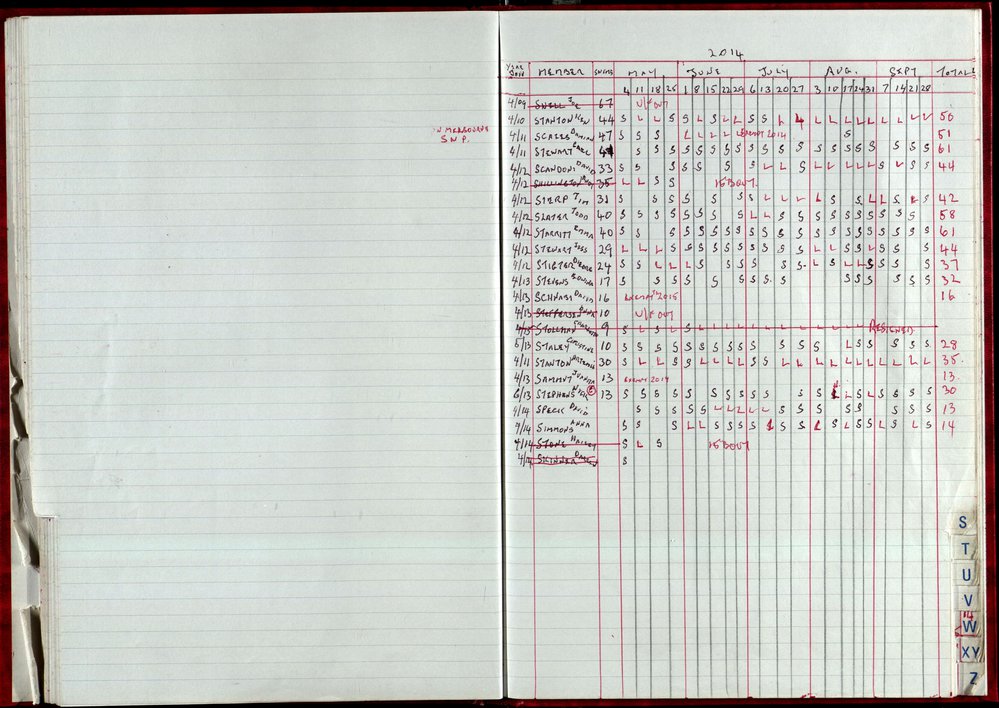 IN MELBOURNE
S.N.P.
2014
YEAR JOIN MEMBER SWIMS MAY JUNE JULY AUG. SEPT TOTAL
4 11 18 25 1 8 15 22 29 6 13 20 27 3 10 17 24 31 7 14 21 28
4/09 SNELL JOE 67 U/F OUT
4/10 STANTON KEN 44 S L S L S S L S L L S S L L L L L L L L L L 50
4/11 SCALES DAMIAN 47 S S S L L L L EXEMPT 2014 S 51
4/11 STEWART S S S S S S S S S S S S S S S S S S S S 61
4/12 SCANDONE DAVID 33 S S S S S S S L L S L L L L S S S 44
4/12 35 L L S S 15 B OUT
4/12 STERP JIM 31 S S S S S S S L L L L S S L L S L S 42
4/12 SLATER TODD 40 S S S S S S S S L L S S S S S S S S S S 58
4/12 STARRITT EMMA 40 S S S S S S S S S S S S S S S S S S S S S 61
4/12 STEWART JESS 29 L L L S S S S S S S S S S L L S S L S S S 44
4/12 24 S S L L L S S S S S S L S L L S S S S 37
4/13 STEVENS 17 S S S S S S S S S S S S S S S 32
4/13 SCHNABL DAVID 16 EXEMPT 2015 16
4/13 STEFFENSEN ANNA 10 U/F OUT
4/13 9 S L S L S L L L L L L L L L L RESIGNED
5/13 STALEY CHRISTINE 10 S S S S S S S S S S S S S L S S S S S 28
4/11 STANTON 30 L L S S S L L L L S S L L L L L L L L L L L 35
4/13 SAMMUT JUANITA 13 EXEMPT 2014 13
6/13 STEPHENS NICK 13 S S S S S S S S S S S S S S L L S L S S S S 30
4/14 SPECK DAVID S S S S S L L L L L S S S S S S S S 13
4/14 SIMMONS ANNA S S S L L S S S S L S S L S L S S L S L S 14
4/14 STONE HAILEY S L S 15 B OUT
4/14 SKINNER S
S
T
U
V
W
XY
Z